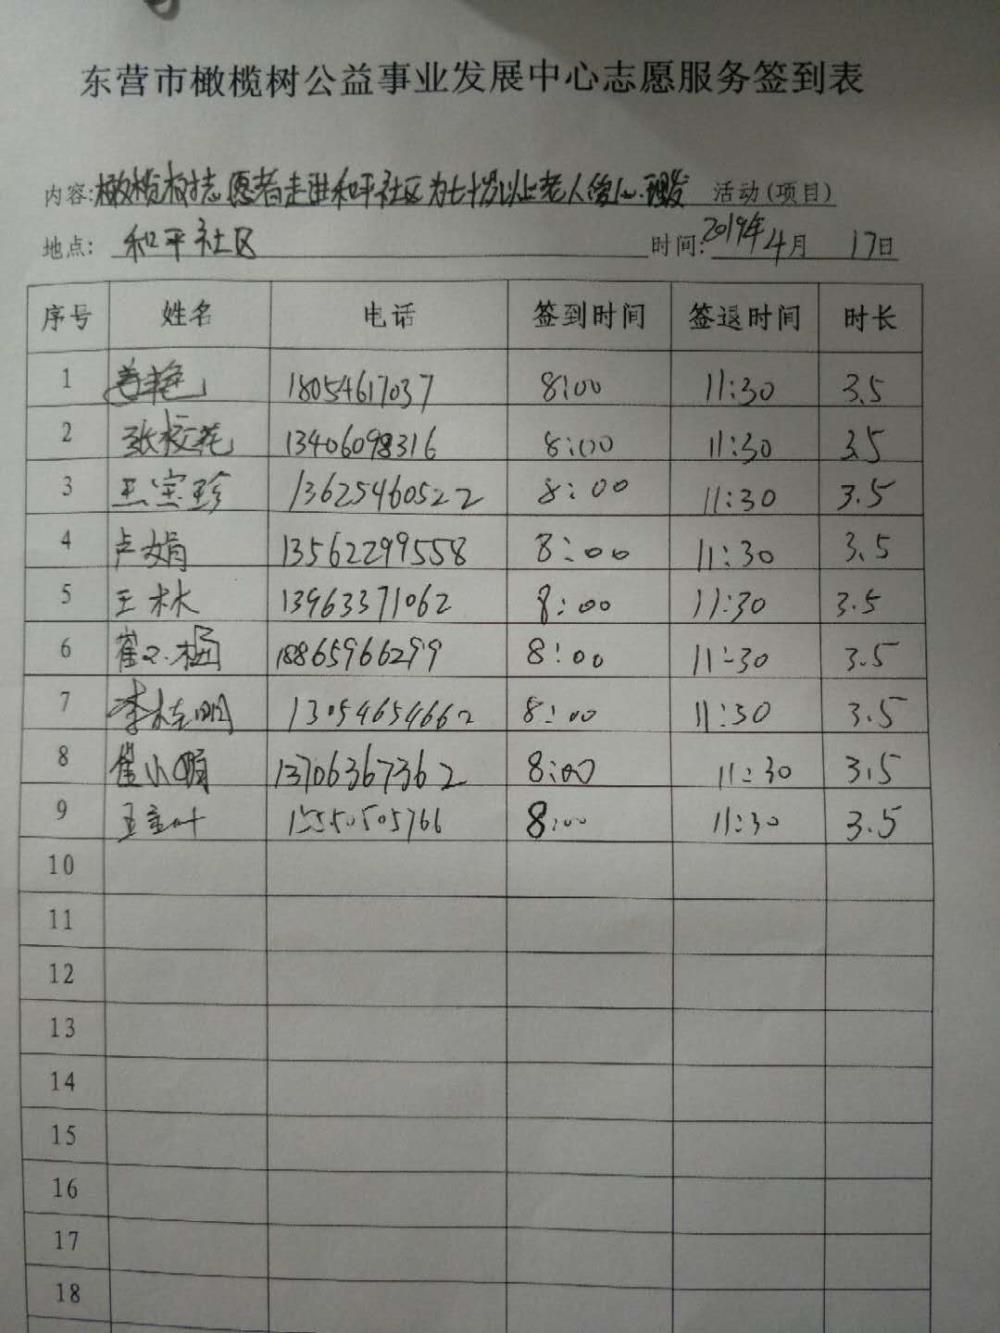 东营市橄榄树公益事业发展中心志愿服务签到表
内容:橄榄树志愿者走进和平社区为七十岁以上老人爱心理发 活动(项目)
地点: 和平社区 时间:2019年4月17日
序号 姓名 电话 签到时间 签退时间 时长
1 18054617037 8:00 11:30 3.5
2 张校花 13406098316 8:00 11:30 3.5
3 王宝珍 13625460522 8:00 11:30 3.5
4 卢娟 13562299558 8:00 11:30 3.5
5 王林 13963371062 8:00 11:30 3.5
6 18865966299 8:00 11:30 3.5
7 李志明 13054654662 8:00 11:30 3.5
8 崔小顺 13706367362 8:00 11:30 3.5
9 15550505766 8:00 11:30 3.5
10
11
12
13
14
15
16
17
18